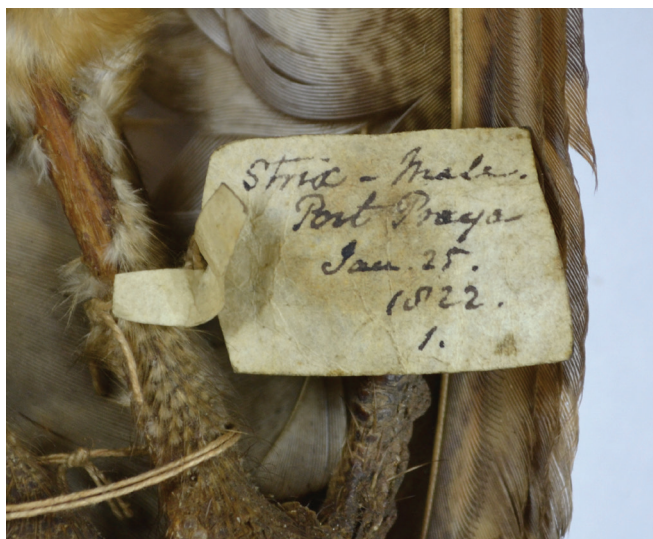 Strix - Male.
Port Praya
Jan. 25.
1822.
1.